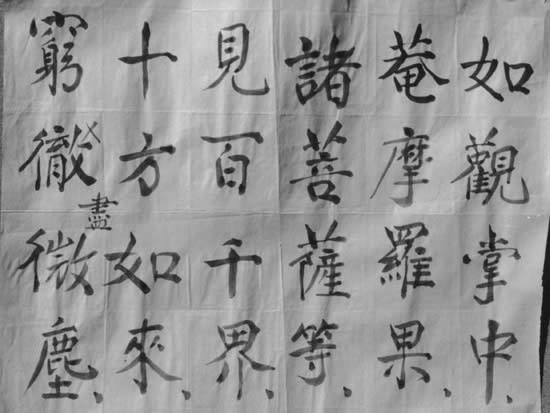 如觀掌中、
菴摩羅果、
諸菩薩等、
見百千界、
十方如來、
窮徹盡微塵、